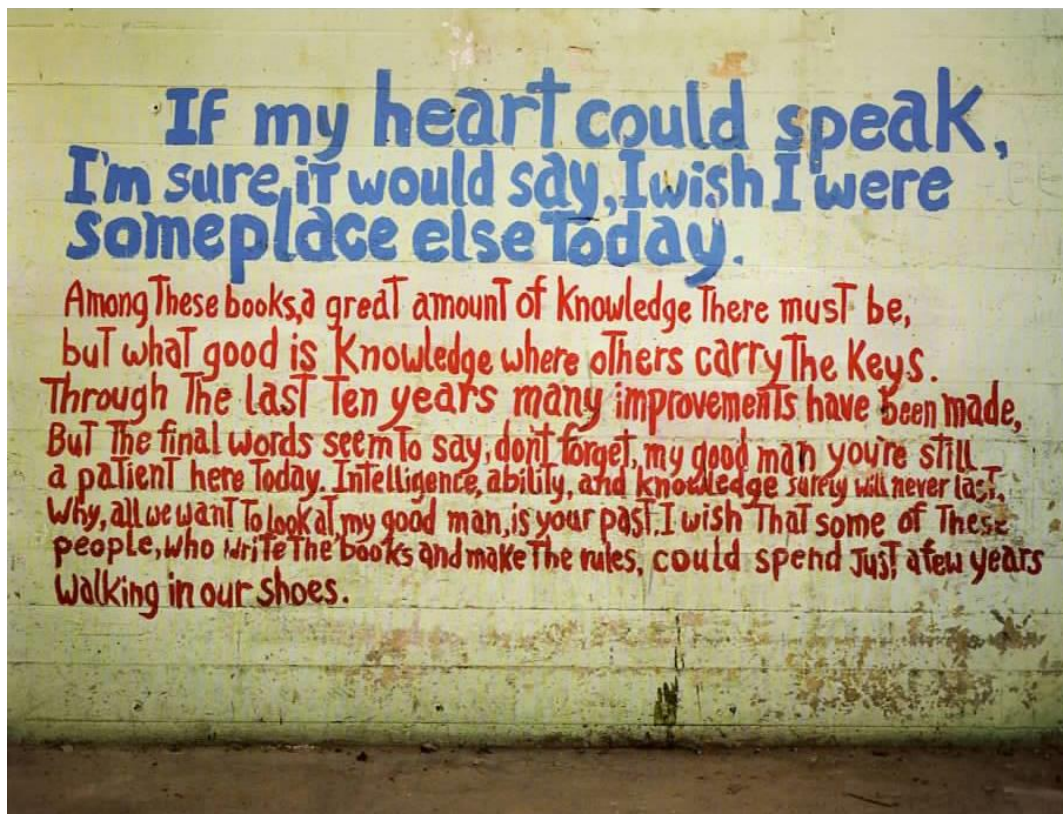 IF my heart could speak,
I'm sure, it would say, I wish I were
someplace else Today.
Among These books, a great amount of Knowledge There must be,
but what good is Knowledge where others carry The Keys.
Through The last Ten years many improvements have been made,
But The final words seem To say, don't forget, my good man you're still
a patient here Today. Intelligence, ability, and knowledge surely will never last.
Why, all we want To look at, my good man, is your past. I wish That some of These
people, who write The books and make The rules, could spend Just a few years
Walking in our shoes.